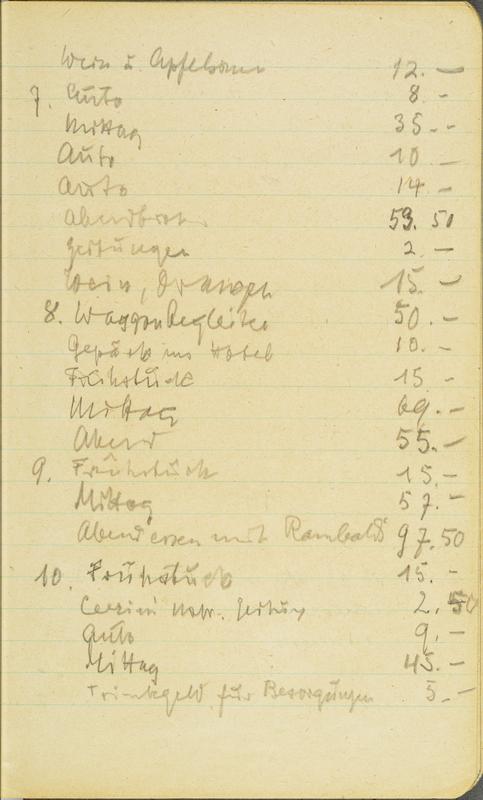 Wein u. Apfelsinen 12. —
7. Auto 8 -
Mittag 35 - -
Auto 10 —
Auto 14 -
Abendbrot 53. 50
Zeitungen 2. —
Wein, Orangen 15. —
8. Waggonbegleiter 50. —
Gepäck ins Hotel 10. —
Frühstück 15 -
Mittag 69. —
Abend 55. —
9. Frühstück 15. -
Mittag 57. -
Abendessen mit Rambald 97.50
10. Frühstück 15. -
Zeitung 2. 50
Auto 9. —
Mittag 45. —
Trinkgeld für Besorgungen 5. —